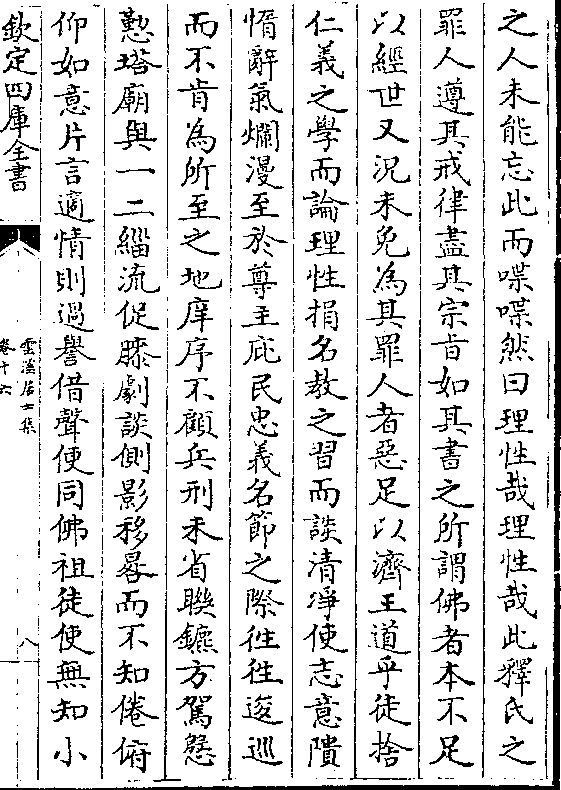 之人未能忘此而喋喋然曰理性哉理性哉此釋氏之
罪人遵其戒律盡其宗旨如其書之所謂佛者本不足
以經世又況未免為其罪人者惡足以濟王道乎徒捨
仁義之學而論理性捐名教之習而談清凈使志意隤
惰辭氣爛漫至於尊主庇民忠義名節之際徃徃逡巡
而不肯為所至之地庠序不顧兵刑未省聨鑣方駕憩
懃塔廟與一二緇流促膝劇談側影移晷而不知倦俯
仰如意片言適情則過譽借聲使同佛祖徒使無知小
欽定四庫全書
雲溪居士集
卷十六
八